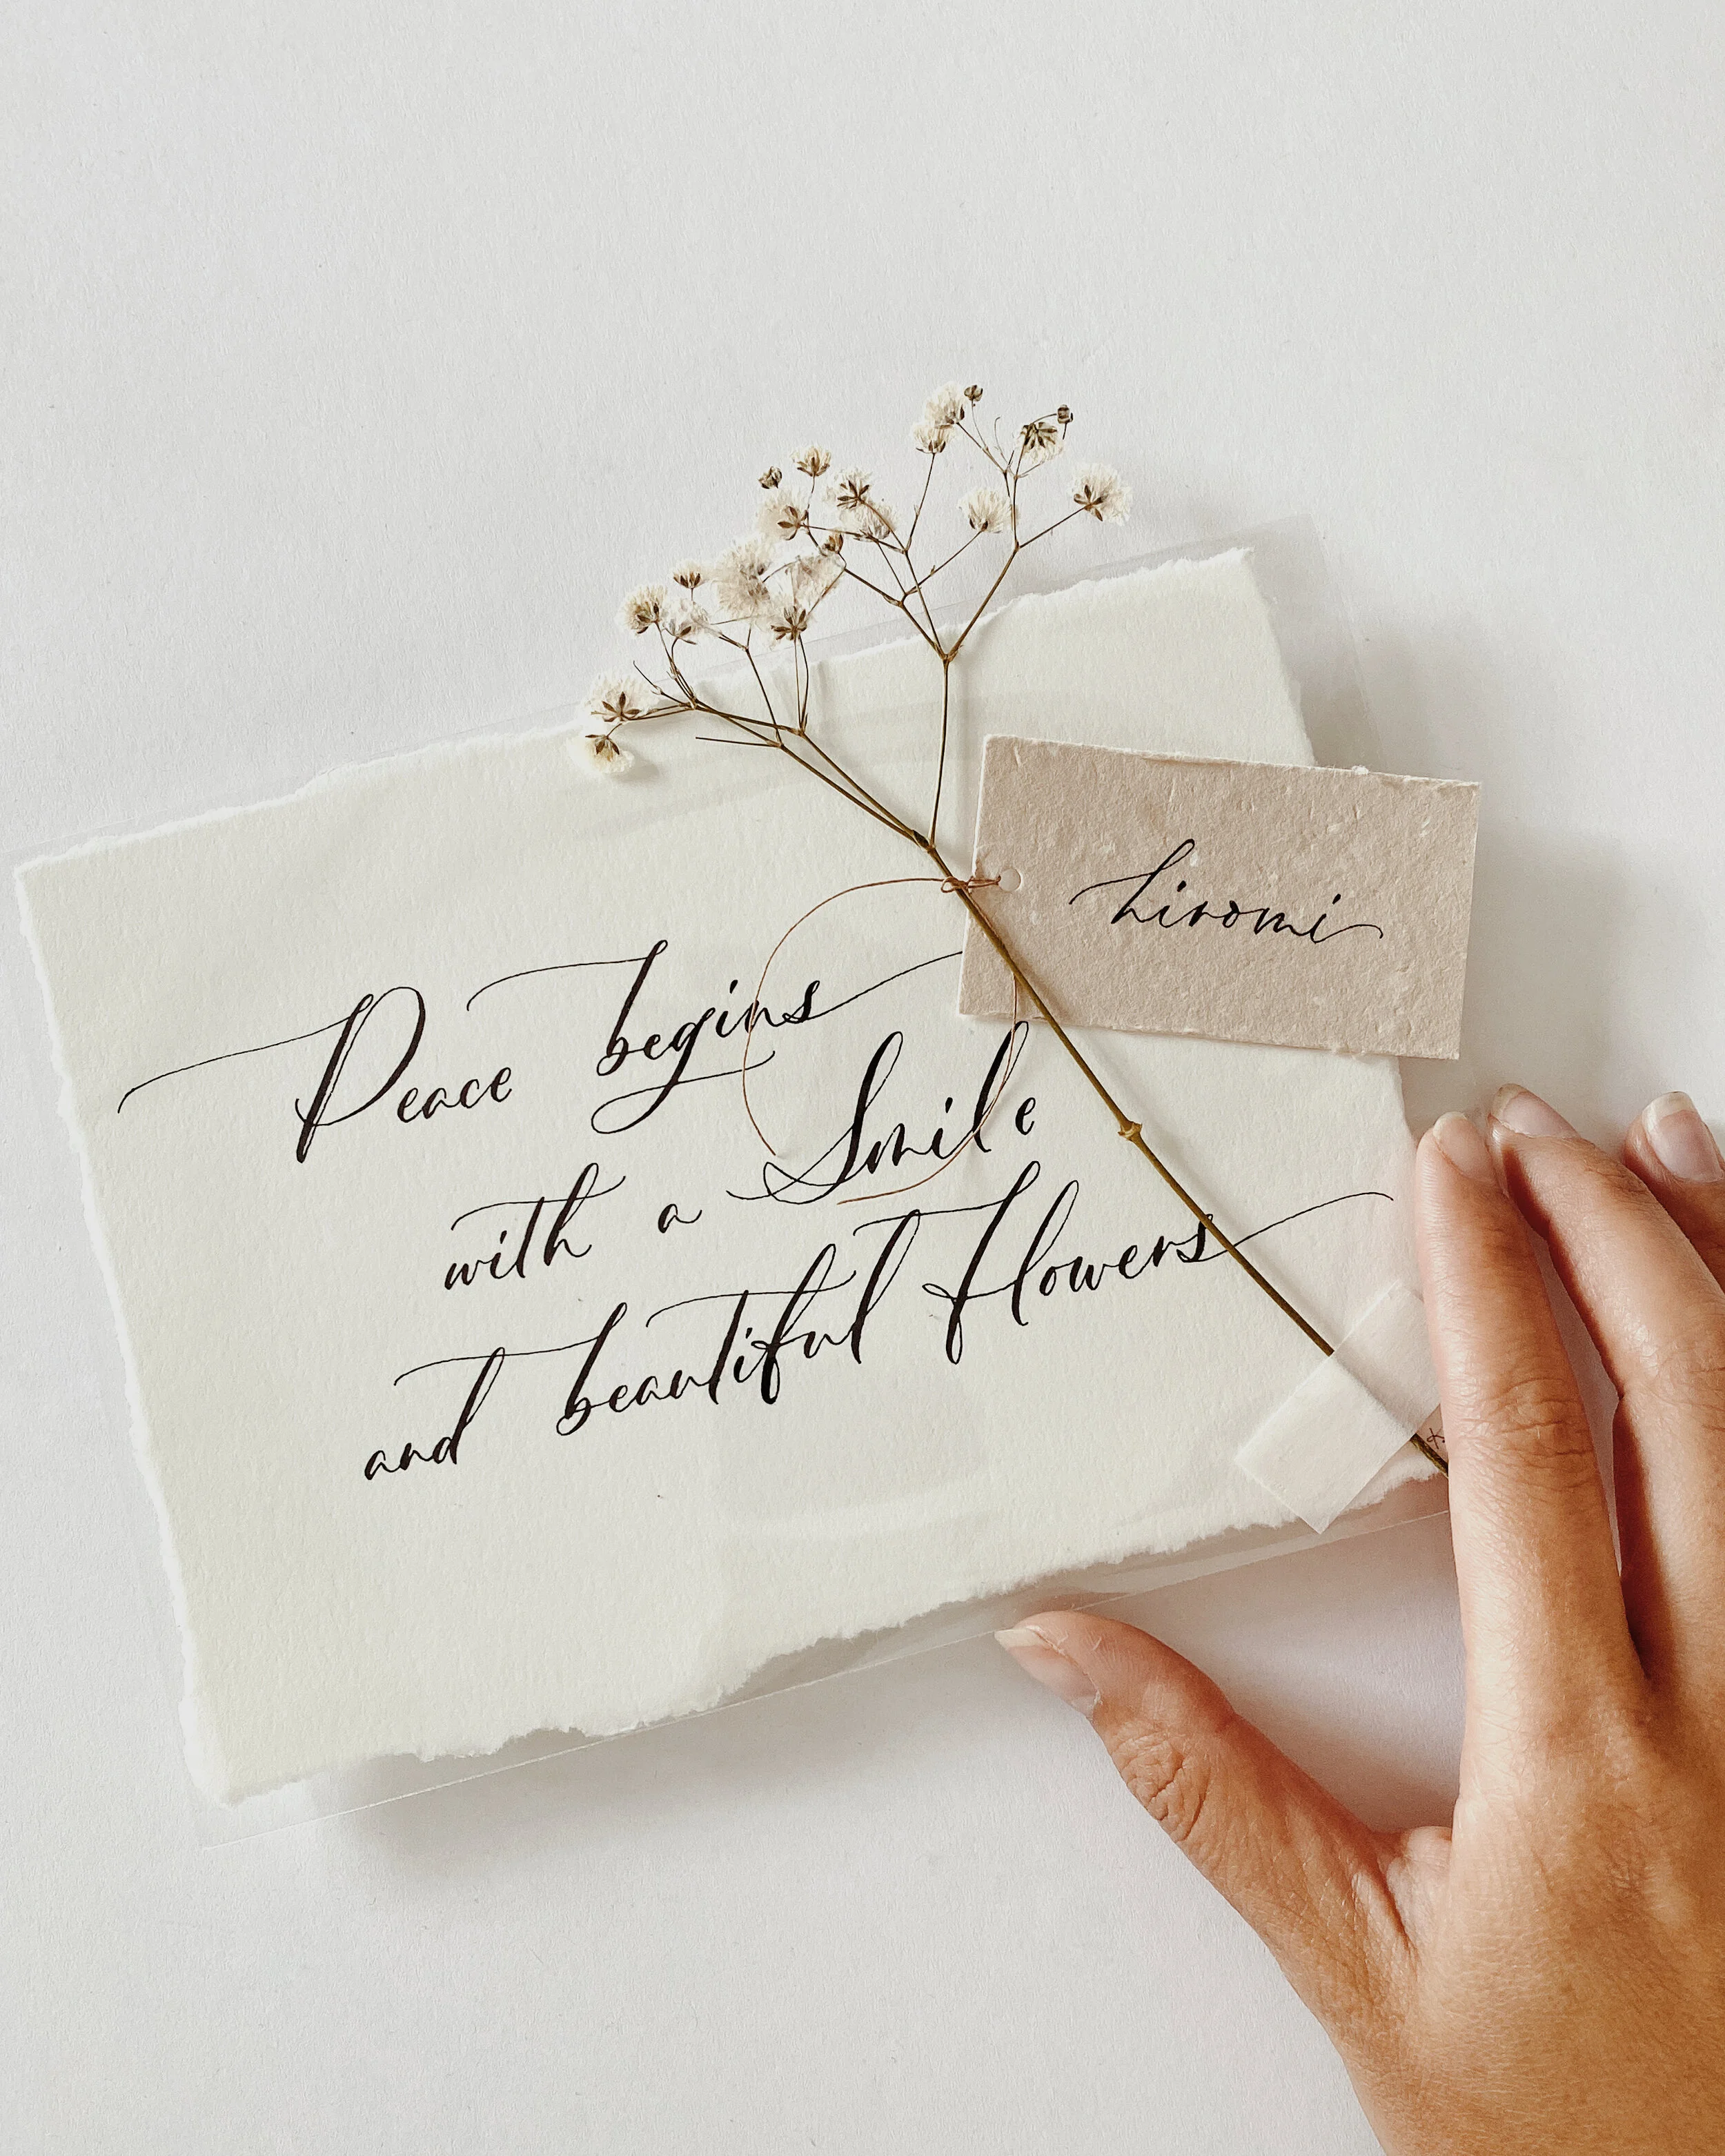 Peace begins
with a Smile
and beautiful Flowers
hiromi